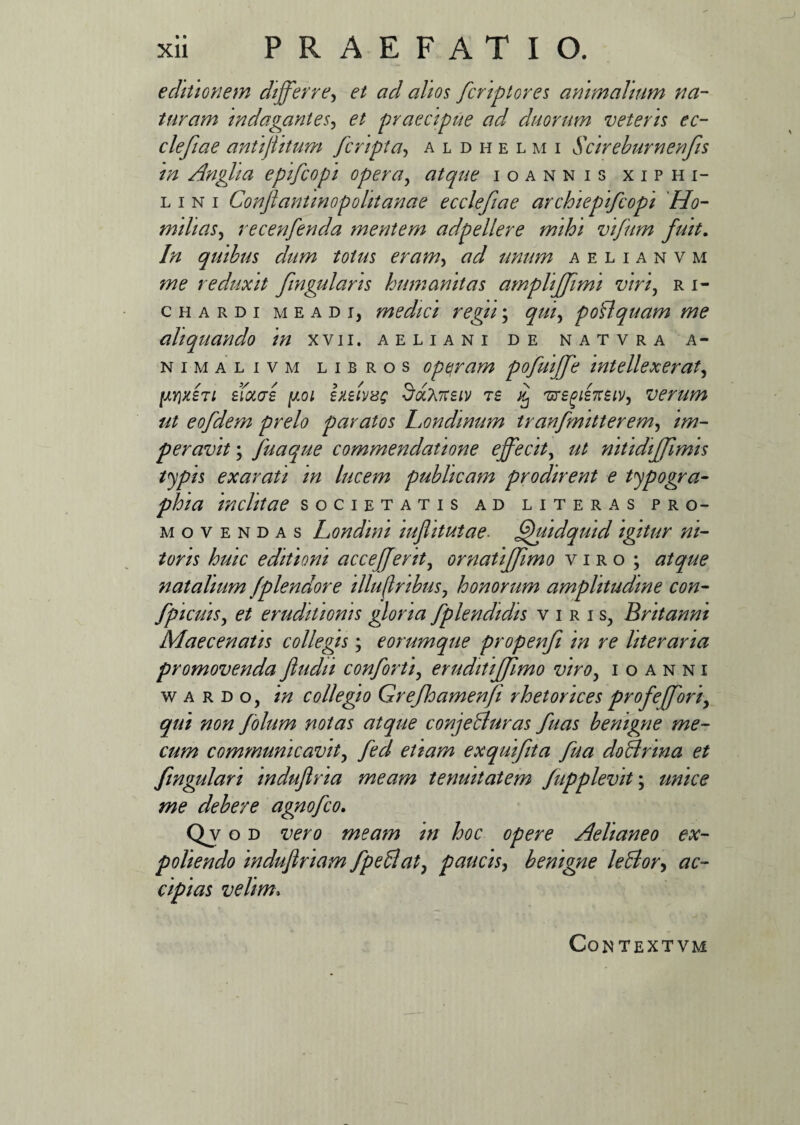 xii PRAEFATIO.
editionem differre, et ad alios ſcriptores animalium na-
turam indagantes, et praecipue ad duorum veteris ec-
cleſiae antiſtitum ſcripta, ALDHELMI Scireburnenſis
in Anglia epiſcopi opera, atque IOANNIS XIPHI-
LINI Conſtantinopolitanae eccleſiae archiepiſcopi Ho-
milias, recenſenda mentem adpellere mihi viſum fuit.
In quibus dum totus eram, ad unum AELIANVM
me reduxit ſingularis humanitas ampliſſimi viri, RI-
CHARDI MEADI, medici regii; qui, poſtquam me
aliquando in XVII. AELIANI DE NATVRA A-
NIMALIVM LIBROS operam poſuiſſe intellexerat,
μηκέτι εἴασέ μοι ἐκείνȣς θάλπειν τε ϗ ϖεριέπειν, verum
ut eoſdem prelo paratos Londinum tranſmitterem, im-
peravit; ſuaque commendatione effecit, ut nitidiſſimis
typis exarati in lucem publicam prodirent e typogra-
phia inclitae SOCIETATIS AD LITERAS PRO-
MOVENDAS Londini iuſtitutae. Quidquid igitur ni-
toris huic editioni acceſſerit, ornatiſſimo VIRO; atque
natalium ſplendore illuſtribus, honorum amplitudine con-
ſpicuis, et eruditionis gloria ſplendidis VIRIS, Britanni
Maecenatis collegis; eorumque propenſi in re literaria
promovenda ſtudii conſorti, eruditiſſimo viro, IOANNI
WARDO, in collegio Greſhamenſi rhetorices profeſſori,
qui non ſolum notas atque conjecturas ſuas benigne me-
cum communicavit, ſed etiam exquiſita ſua doctrina et
ſingulari induſtria meam tenuitatem ſupplevit; unice
me debere agnoſco.
QVOD vero meam in hoc opere Aelianeo ex-
poliendo induſtriam ſpectat, paucis, benigne lector, ac-
cipias velim.
CONTEXTVM